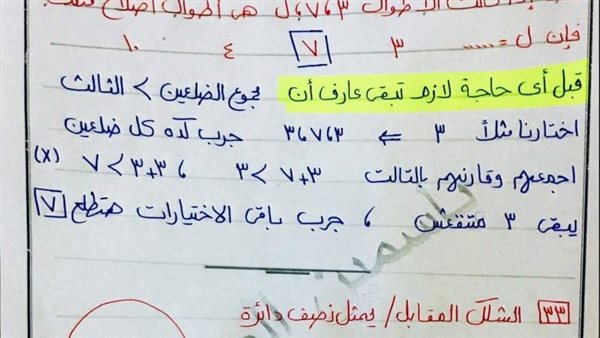 كانت الأطوال ٣ ، ٧ ، ل هى أطوال أضلاع مثلث
فإن ل = ...... ٣ ٧ ٤ ١٠
قبل أى حاجة لازم تبقى عارف أن مجموع الضلعين > الثالث
اختارنا مثلاً ٣ ⇐ ٣ ، ٧ ، ٣ جرب كده كل ضلعين
اجمعهم وقارنهم بالتالت ٣ + ٧ > ٣ ، ٣ + ٣ > ٧ (X)
يبقى ٣ متنفعش ، جرب باقى الاختيارات هتطلع ٧
ياسمين
٣٣ الشكل المقابل / يمثل نصف دائرة